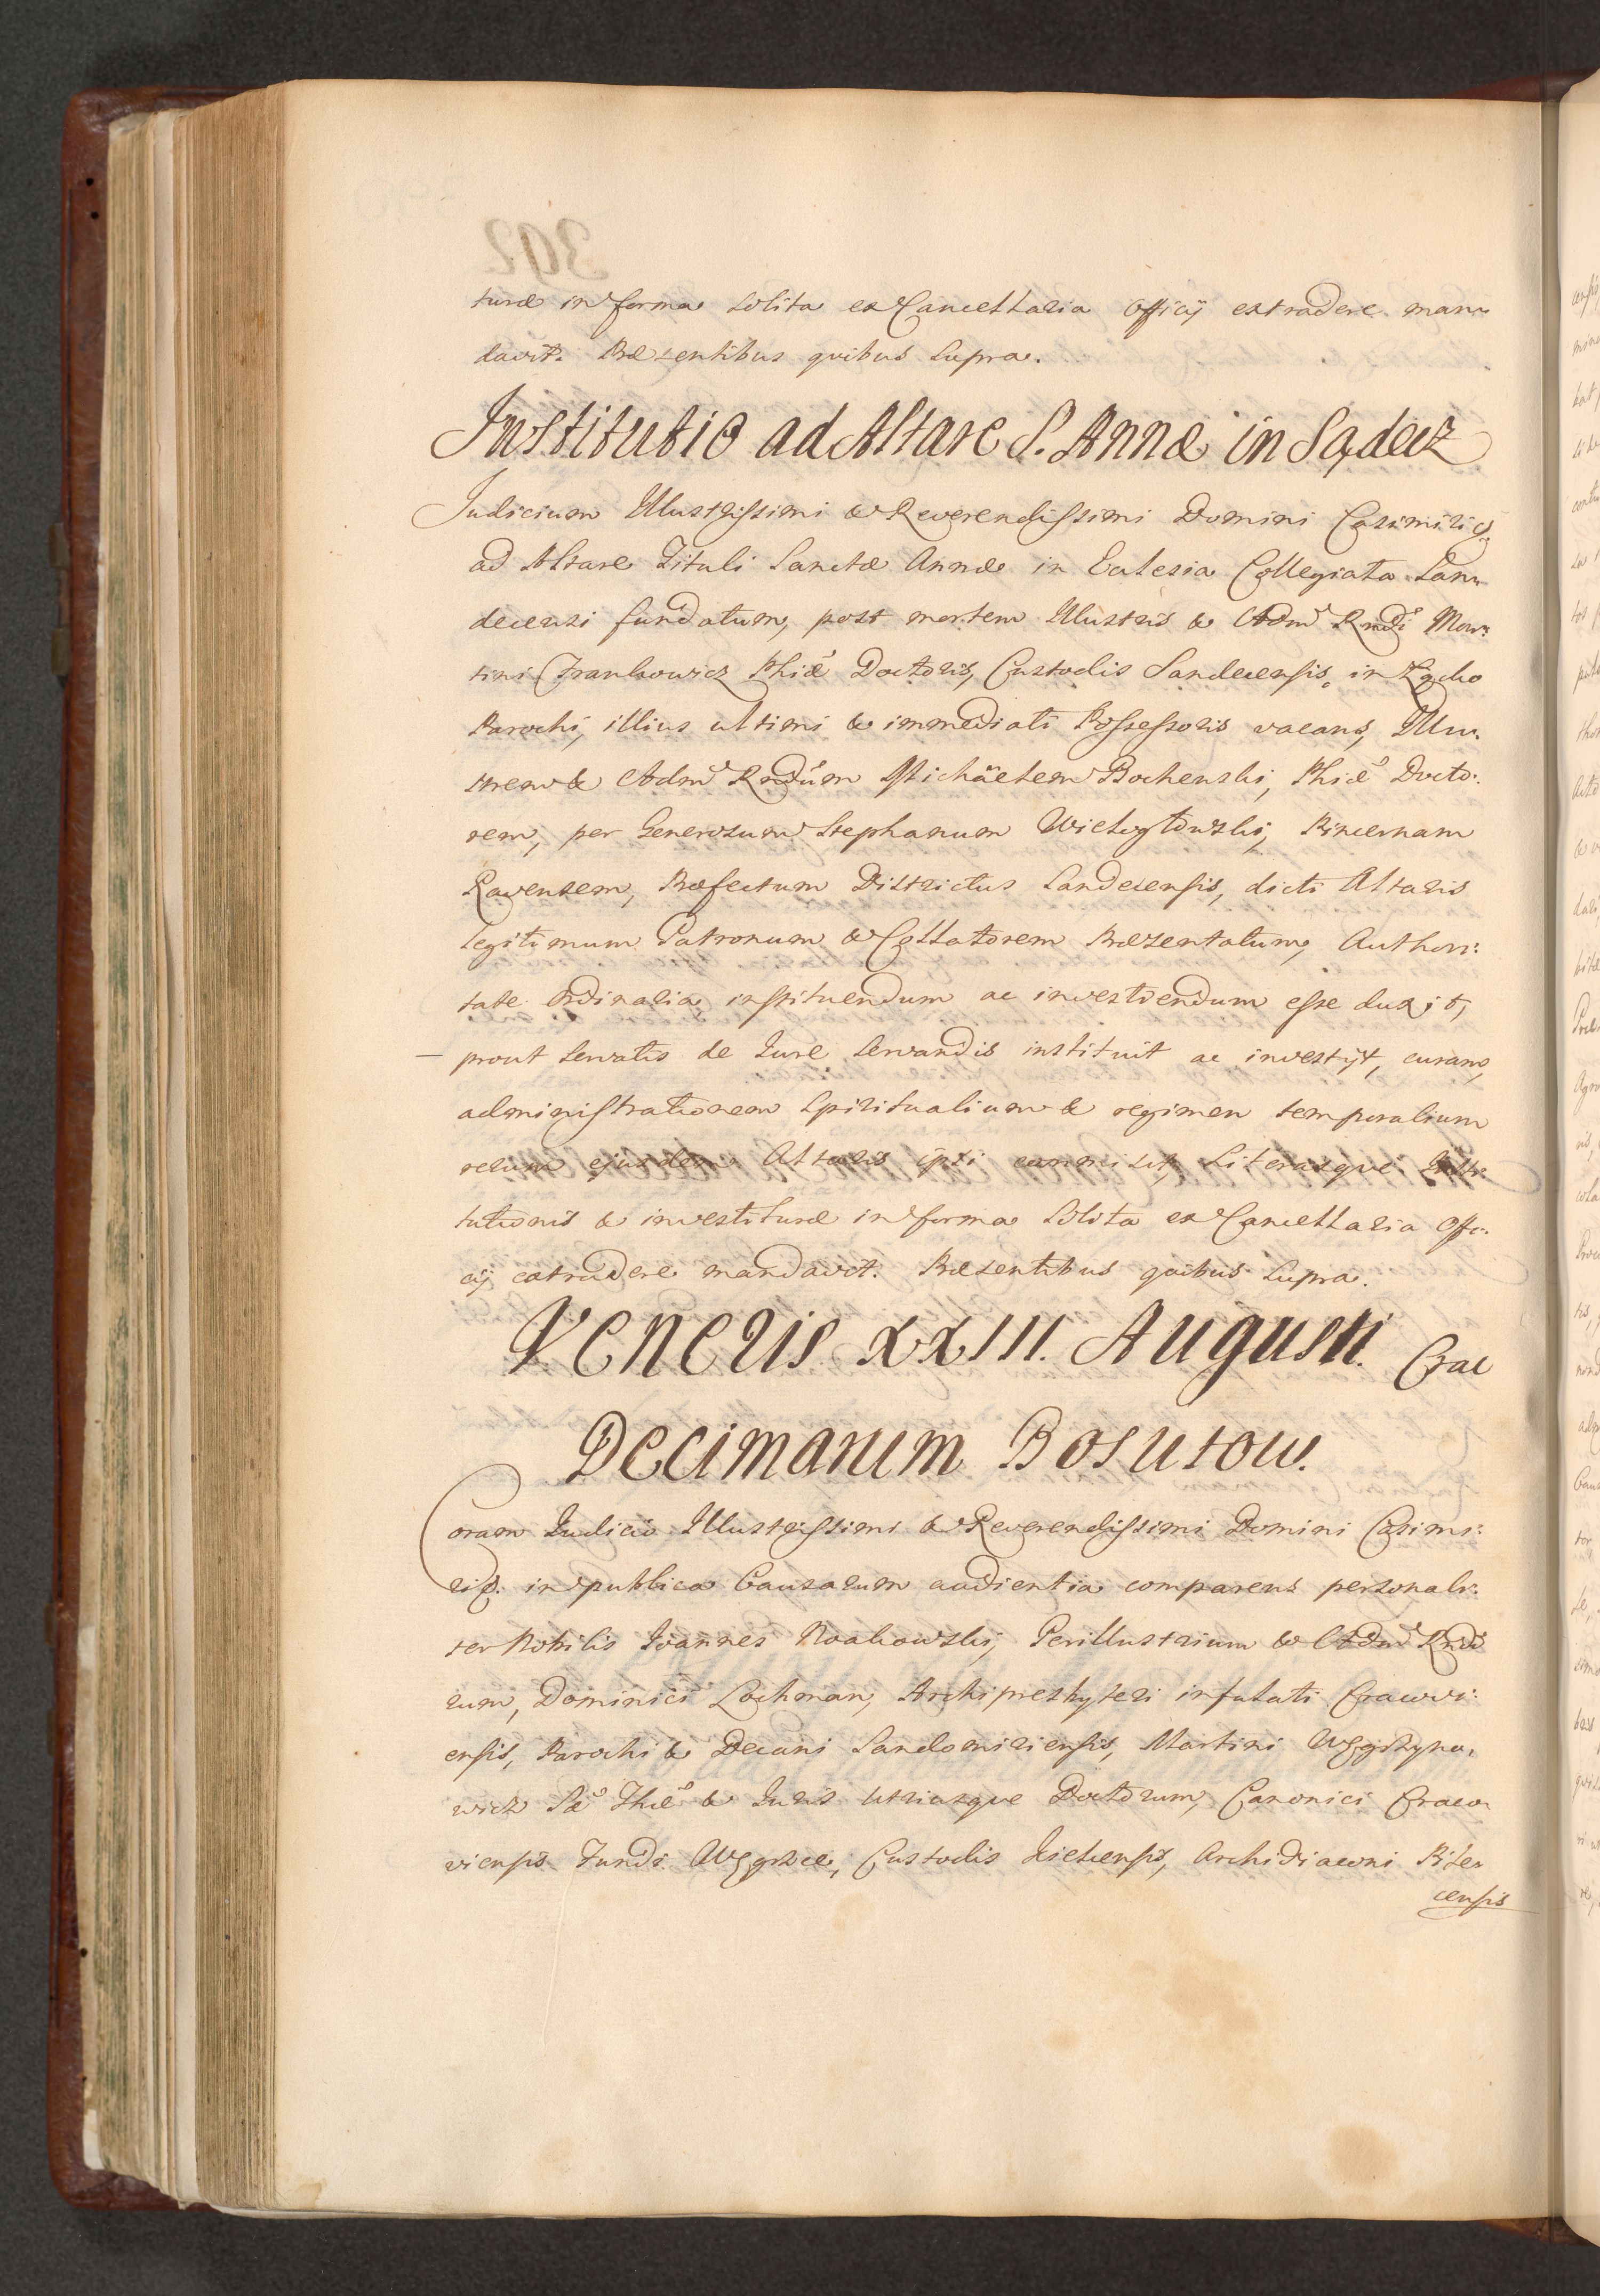 turæ in forma solita ex Cancellaria Officij extradere man:
davit. Præsentibus quibus supra.
Institutio ad Altare S. Annæ in Sądecz
Judicium Illustrissimi & Reverendissimi Domini Casimiri &.
ad Altare Tituli Sanctæ Annæ in Ecclesia Collegiata San:
decensi fundatum, post mortem Illustris & Adm Rndi Mar:
tini Frankowicz Phiæ Doctoris, Custodis Sandecensis, in
Parochi, illius ultimi & immediati Possessoris vacans, Illu:
strem & Adm Rndum Michäelem Bochenski, Phiæ Docto:
rem, per Generosum Stephanum Wielogłowski, Pincernam
Ravensem, Præfectum Districtus Sandecensis, dicti Altaris
legitimum Patronum & Collatorem Præsentatum, Authori:
tate Ordinaria instituendum ac investiendum esse duxit,
prout servatis de Jure servandis instituit ac investijt, curam,
administrationem Spiritualium & regimen temporalium
rerum ejusdem Altaris ipsi commisit, Literasque Insti:
tutionis & investituræ in forma solita ex Cancellaria Offi:
cij extradere mandavit. Præsentibus quibus supra.
Veneris XXIII. Augusti. Crac
Decimarum Bosutow.
Coram Judicio Illustrissimi & Reverendissimi Domini Casimi:
ri &. in publica Causarum audientia comparens personali:
ter Nobilis Joannes Noakowski, Perillustrium & Adm Rndo
rum, Dominici Lochman, Archipresbyteri infulati Cracovi:
ensis, Parochi & Decani Sandomiriensis, Martini
wicz Sæ Thæ & Juris Utriusque Doctorum, Canonici Craco:
viensis Fundi Custodis Kielcensis, Archidiaconi Pile:
censis